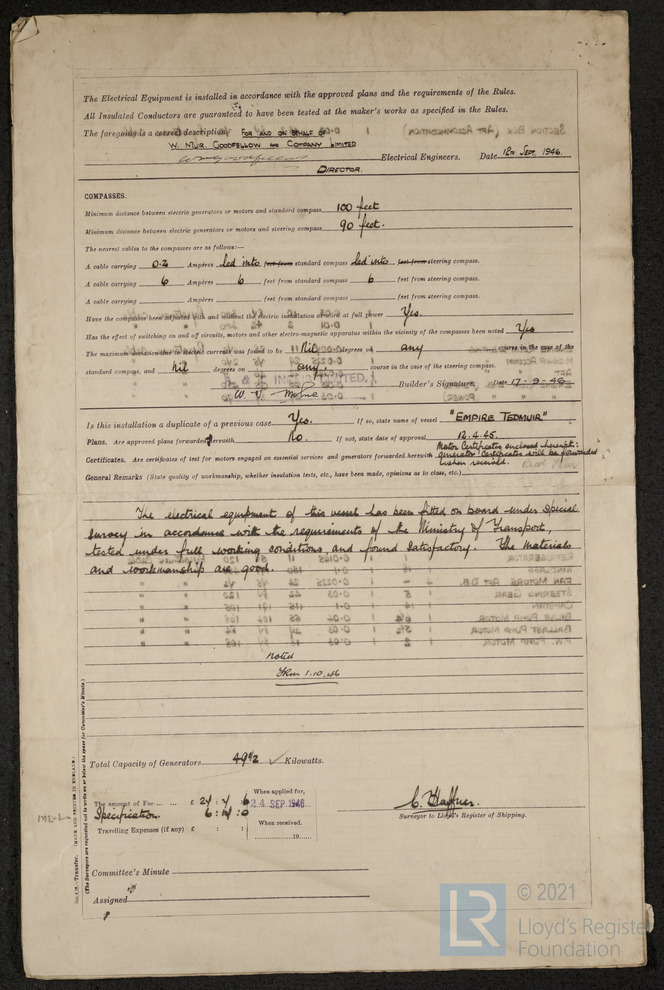 The Electrical Equipment is installed in accordance with the approved plans and the requirements of the Rules.
All Insulated Conductors are guaranteed to have been tested at the maker's works as specified in the Rules.
The foregoing is a correct description, FOR AND ON BEHALF OF
W. MUR. GOODFELLOW AND COMPANY LIMITED
Electrical Engineers. Date 12th Sept. 1946.
DIRECTOR.
COMPASSES.
Minimum distance between electric generators or motors and standard compass 100 feet
Minimum distance between electric generators or motors and steering compass 90 feet.
The nearest cables to the compasses are as follows:—
A cable carrying 0.2 Ampères led into feet from standard compass led into feet from steering compass.
A cable carrying 6 Ampères 6 feet from standard compass 6 feet from steering compass.
A cable carrying Ampères feet from standard compass feet from steering compass.
Have the compasses been adjusted with and without the electric installation at work at full power Yes.
Has the effect of switching on and off circuits, motors and electro-magnetic apparatus within the vicinity of the compasses been noted Yes
The maximum deviation due to electric currents was found to be Nil degrees on any course in the case of the
standard compass, and nil degrees on any course in the case of the steering compass.
Builder's Signature. Date 17-9-46
Is this installation a duplicate of a previous case Yes. If so, state name of vessel "EMPIRE TEDMUIR"
Plans. Are approved plans forwarded herewith No. If not, state date of approval 12.4.45.
Certificates. Are certificates of test for motors engaged on essential services and generators forwarded herewith Motor Certificates enclosed herewith: generator certificates will be forwarded when received.
General Remarks (State quality of workmanship, whether insulation tests, etc., have been made, opinions as to class, etc.)
The electrical equipment of this vessel has been fitted on board under Special
Survey in accordance with the requirements of the Ministry of Transport,
tested under full working conditions, and found satisfactory. The materials
and workmanship are good.
noted
1.10.46
Total Capacity of Generators 49½ Kilowatts.
The amount of Fee ... ... £ 24 : 4 : 6
When applied for,
24 SEP 1946
Specification 6 : 14 : 0
When received.
Travelling Expenses (if any) £ : :
19
C. Haffner.
Surveyor to Lloyd's Register of Shipping.
Committee's Minute
Assigned
(MADE AND PRINTED IN ENGLAND.)
(The Surveyors are requested not to write on or below the space for Committee's Minute.)
© 2021
Lloyd's Register
Foundation
LR